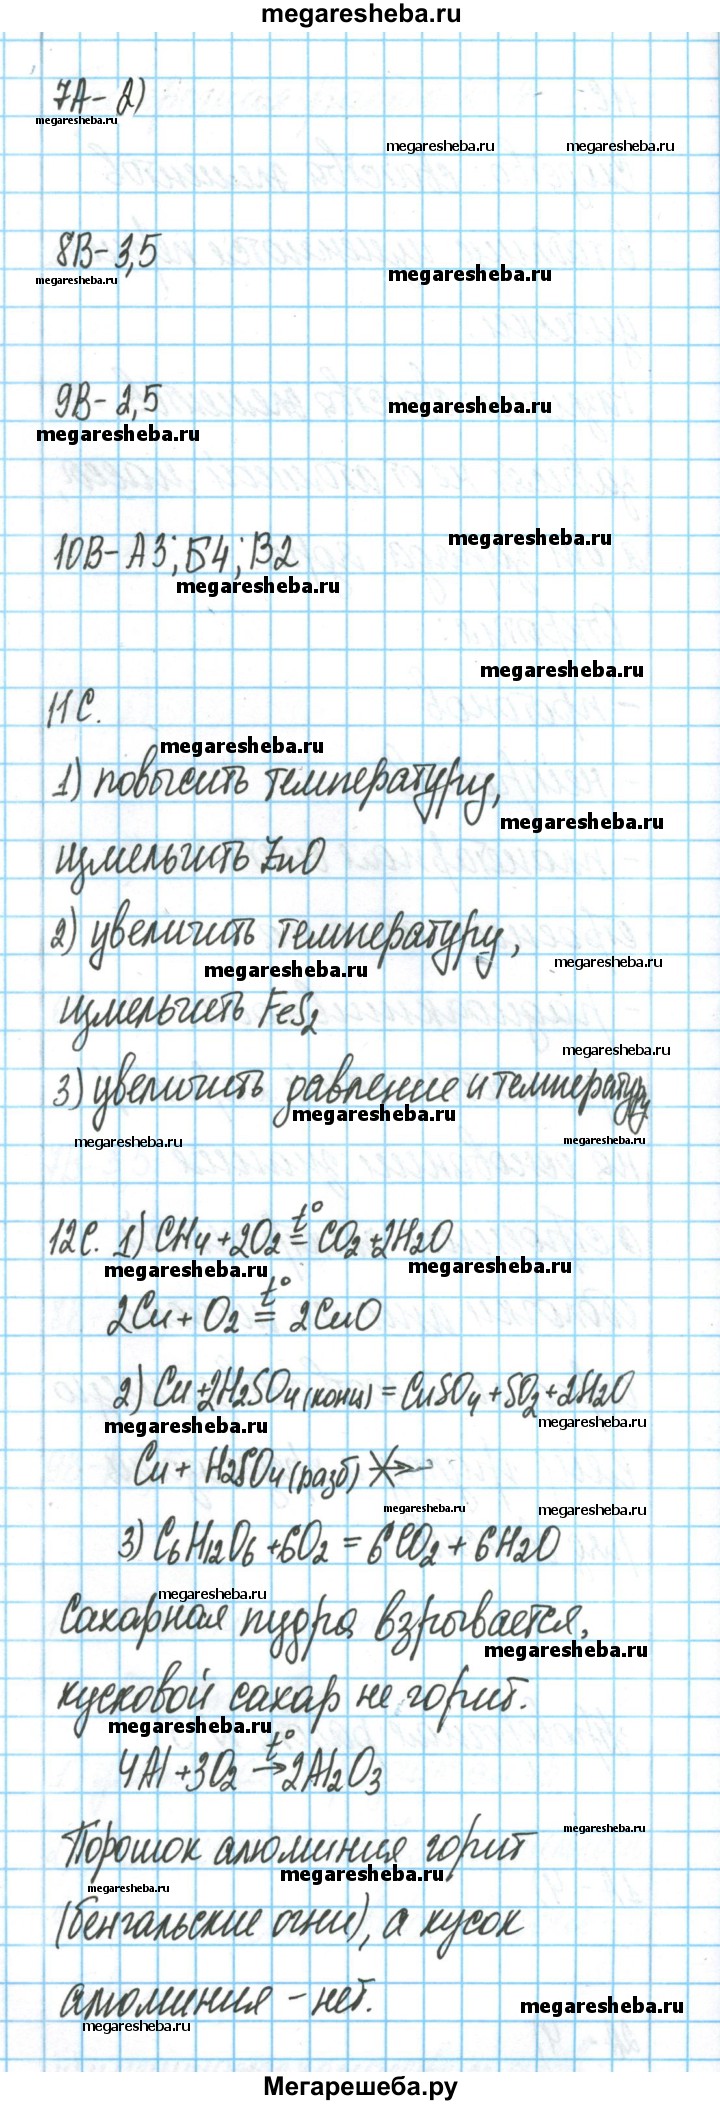 megaresheba.ru
7А- 2)
megaresheba.ru
megaresheba.ru megaresheba.ru
8В-3,5
megaresheba.ru
megaresheba.ru
9В-2,5
megaresheba.ru
megaresheba.ru
10В-А3; Б4; В2
megaresheba.ru
megaresheba.ru
megaresheba.ru
11С.
megaresheba.ru
1) повысить температуру,
megaresheba.ru
измельчить ZnO
2) увеличить температуру,
megaresheba.ru
megaresheba.ru
измельчить FeS₂
megaresheba.ru
3) увеличить давление и температуру
megaresheba.ru
megaresheba.ru
megaresheba.ru
12С. 1) CH₄+2O₂ =t° CO₂+2H₂O
megaresheba.ru
megaresheba.ru
2Cu+O₂ =t° 2CuO
2) Cu+2H₂SO₄(конц)=CuSO₄+SO₂+2H₂O
megaresheba.ru
megaresheba.ru
Cu+H₂SO₄(разб)
megaresheba.ru
megaresheba.ru
3) C₆H₁₂O₆+6O₂=6CO₂+6H₂O
megaresheba.ru
Сахарная пудра взрывается,
megaresheba.ru
кусковой сахар не горит.
megaresheba.ru
4Al+3O₂ →t° 2Al₂O₃
megaresheba.ru
Порошок алюминия горит
megaresheba.ru
megaresheba.ru
(бенгальские огни), а кусок
алюминия - нет.
megaresheba.ru
megaresheba.ru
Мегарешеба.ру